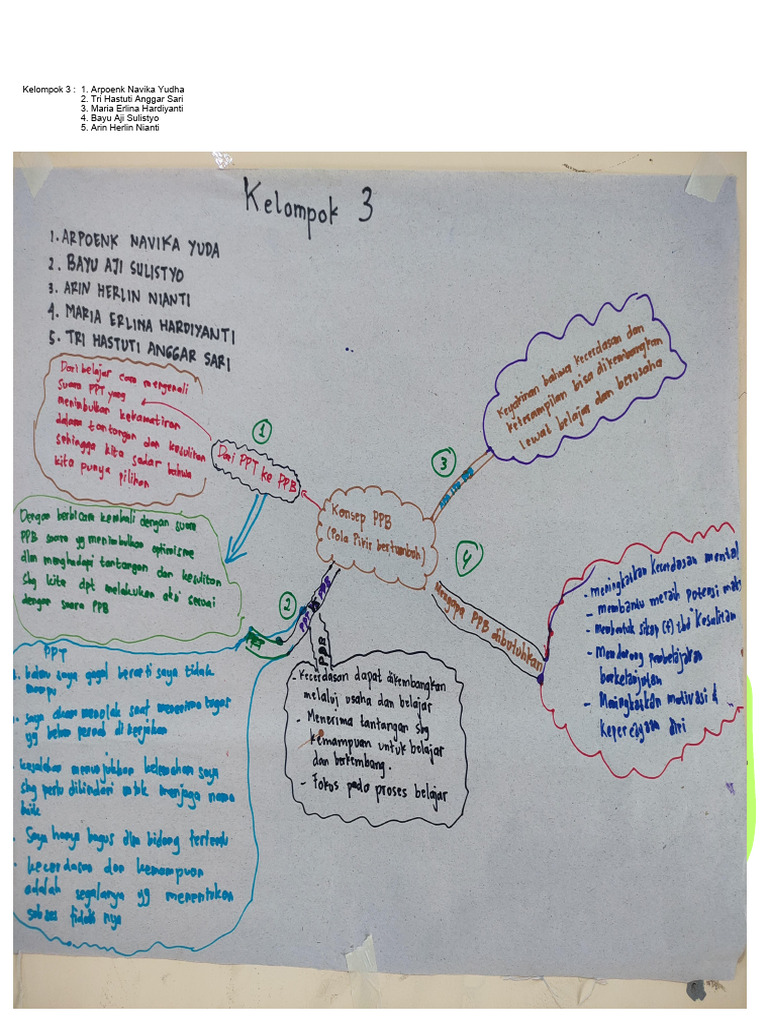 Kelompok 3 : 1. Arpoenk Navika Yudha
2. Tri Hastuti Anggar Sari
3. Maria Erlina Hardiyanti
4. Bayu Aji Sulistyo
5. Arin Herlin Nianti
Kelompok 3
1. ARPOENK NAVIKA YUDA
2. BAYU AJI SULISTYO
3. ARIN HERLIN NIANTI
4. MARIA ERLINA HARDIYANTI
5. TRI HASTUTI ANGGAR SARI
Konsep PPB
(Pola Pikir bertumbuh)
1
Dari PPT ke PPB
Dari belajar cara mengenali
suara PPT yang
menimbulkan kekhawatiran
dalam tantangan dan kesulitan
sehingga kita sadar bahwa
kita punya pilihan
Dengan berbicara kembali dengan suara
PPB suara yg menimbulkan optimisme
dlm menghadapi tantangan dan kesulitan
shg kita dpt melakukan aksi sesuai
dengan suara PPB
2
PPT VS PPB
PPT
PPT
kalau saya gagal berarti saya tidak
mampu
saya akan menolak saat menerima tugas
yg belum pernah di kerjakan
kesalahan menunjukkan kelemahan saya
shg perlu dihindari untuk menjaga nama
baik
Saya hanya bagus dlm bidang tertentu
kecerdasan dan kemampuan
adalah segalanya yg menentukan
sukses tidak nya
PPB
- Kecerdasan dapat dikembangkan
melalui usaha dan belajar
- Menerima tantangan sbg
kemampuan untuk belajar
dan berkembang.
- Fokus pada proses belajar
3
Apa itu PPB
Keyakinan bahwa kecerdasan dan
keterampilan bisa dikembangkan
lewat belajar dan berusaha
4
Mengapa PPB dibutuhkan
- Meningkatkan kecerdasan mental
- Membantu meraih potensi maks
- Membentuk sikap (+) thd kesulitan
- Mendorong pembelajaran
berkelanjutan
- Meningkatkan motivasi &
kepercayaan diri